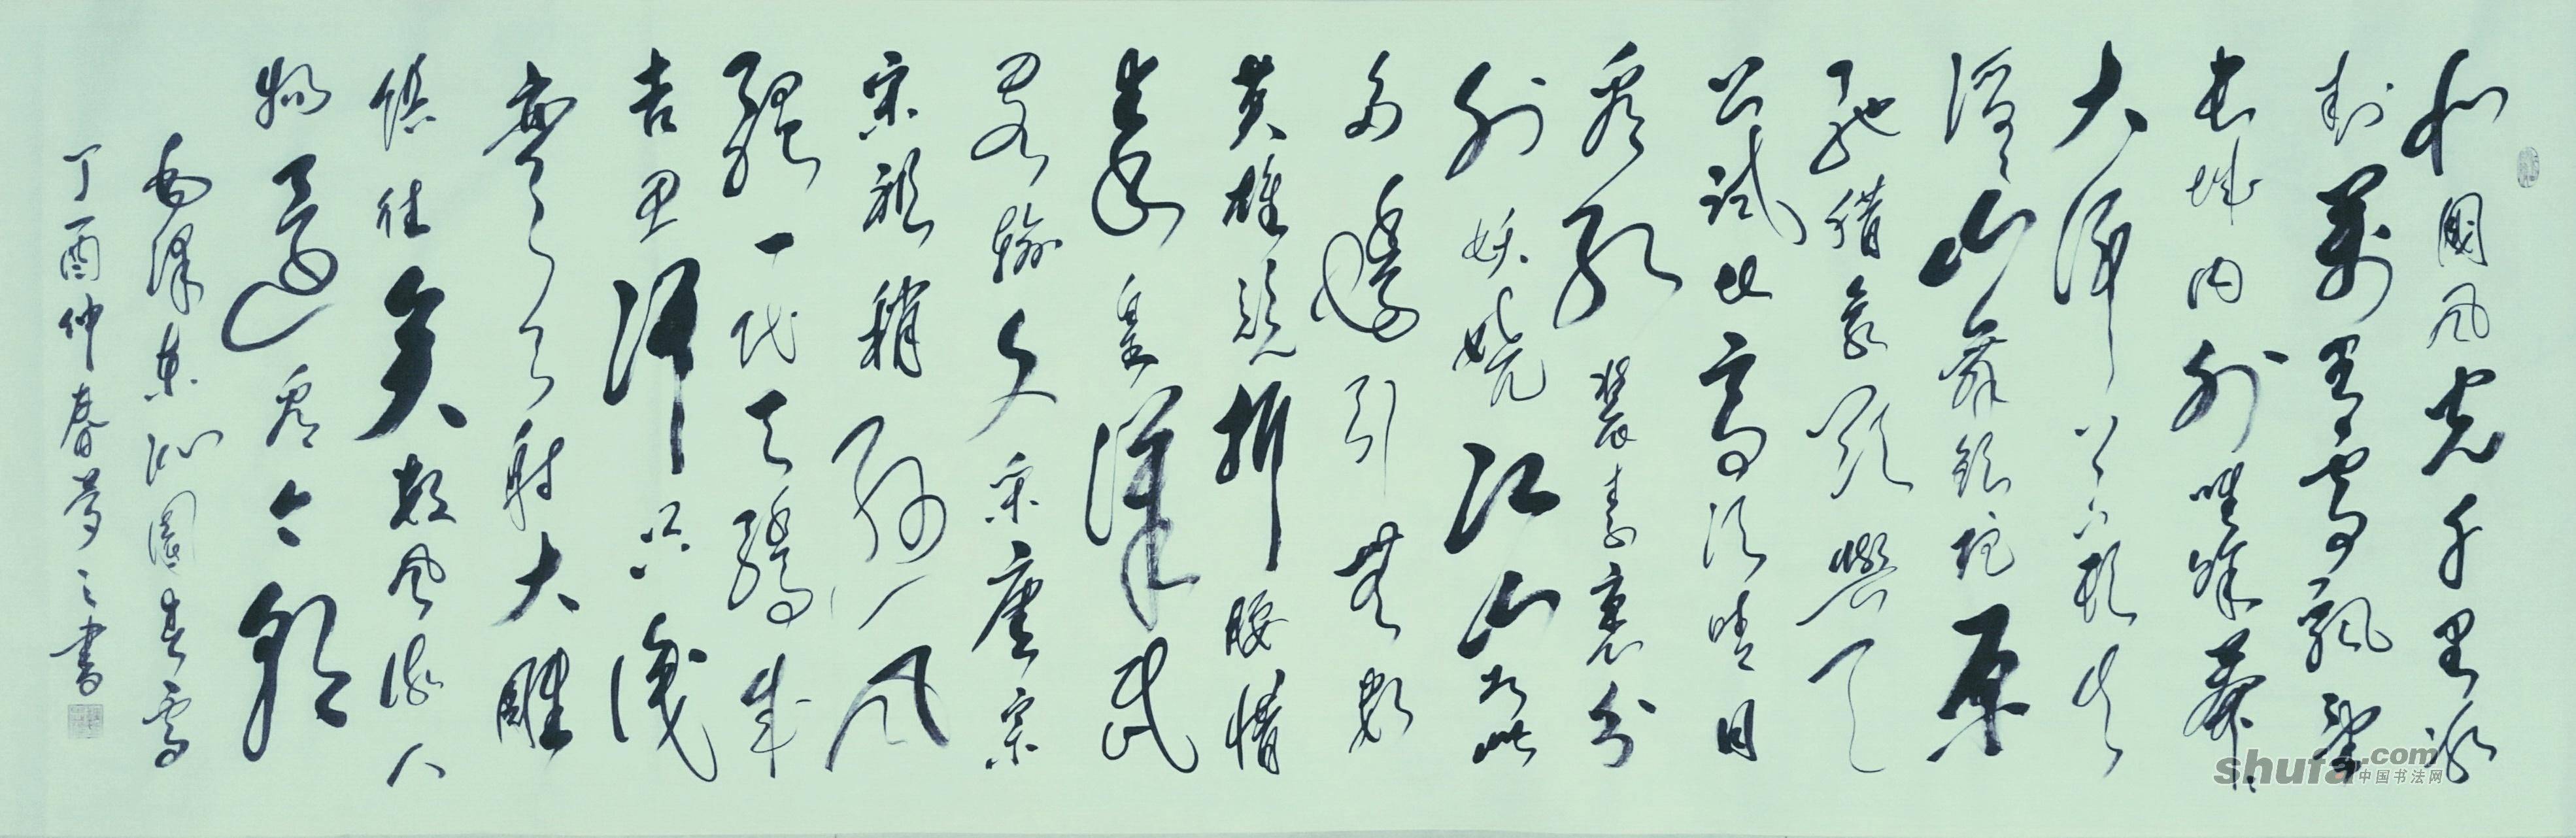 北國風光千里冰
封萬里雪飄望
長城內外唯餘莽
大河上下頓失
滔〻山舞銀蛇原
馳蜡象欲與天
公試比高須晴日
看紅裝素裹分
外妖嬈江山如此
多嬌引無數
英雄競折腰惜
秦皇漢武
略輸文采唐宗
宋祖稍遜風
騷一代天驕成
吉思汗只識
彎弓射大雕
俱往矣數風流人
物還看今朝
毛澤東沁園春雪
丁酉仲春夢之書
shufa.com
中国书法网